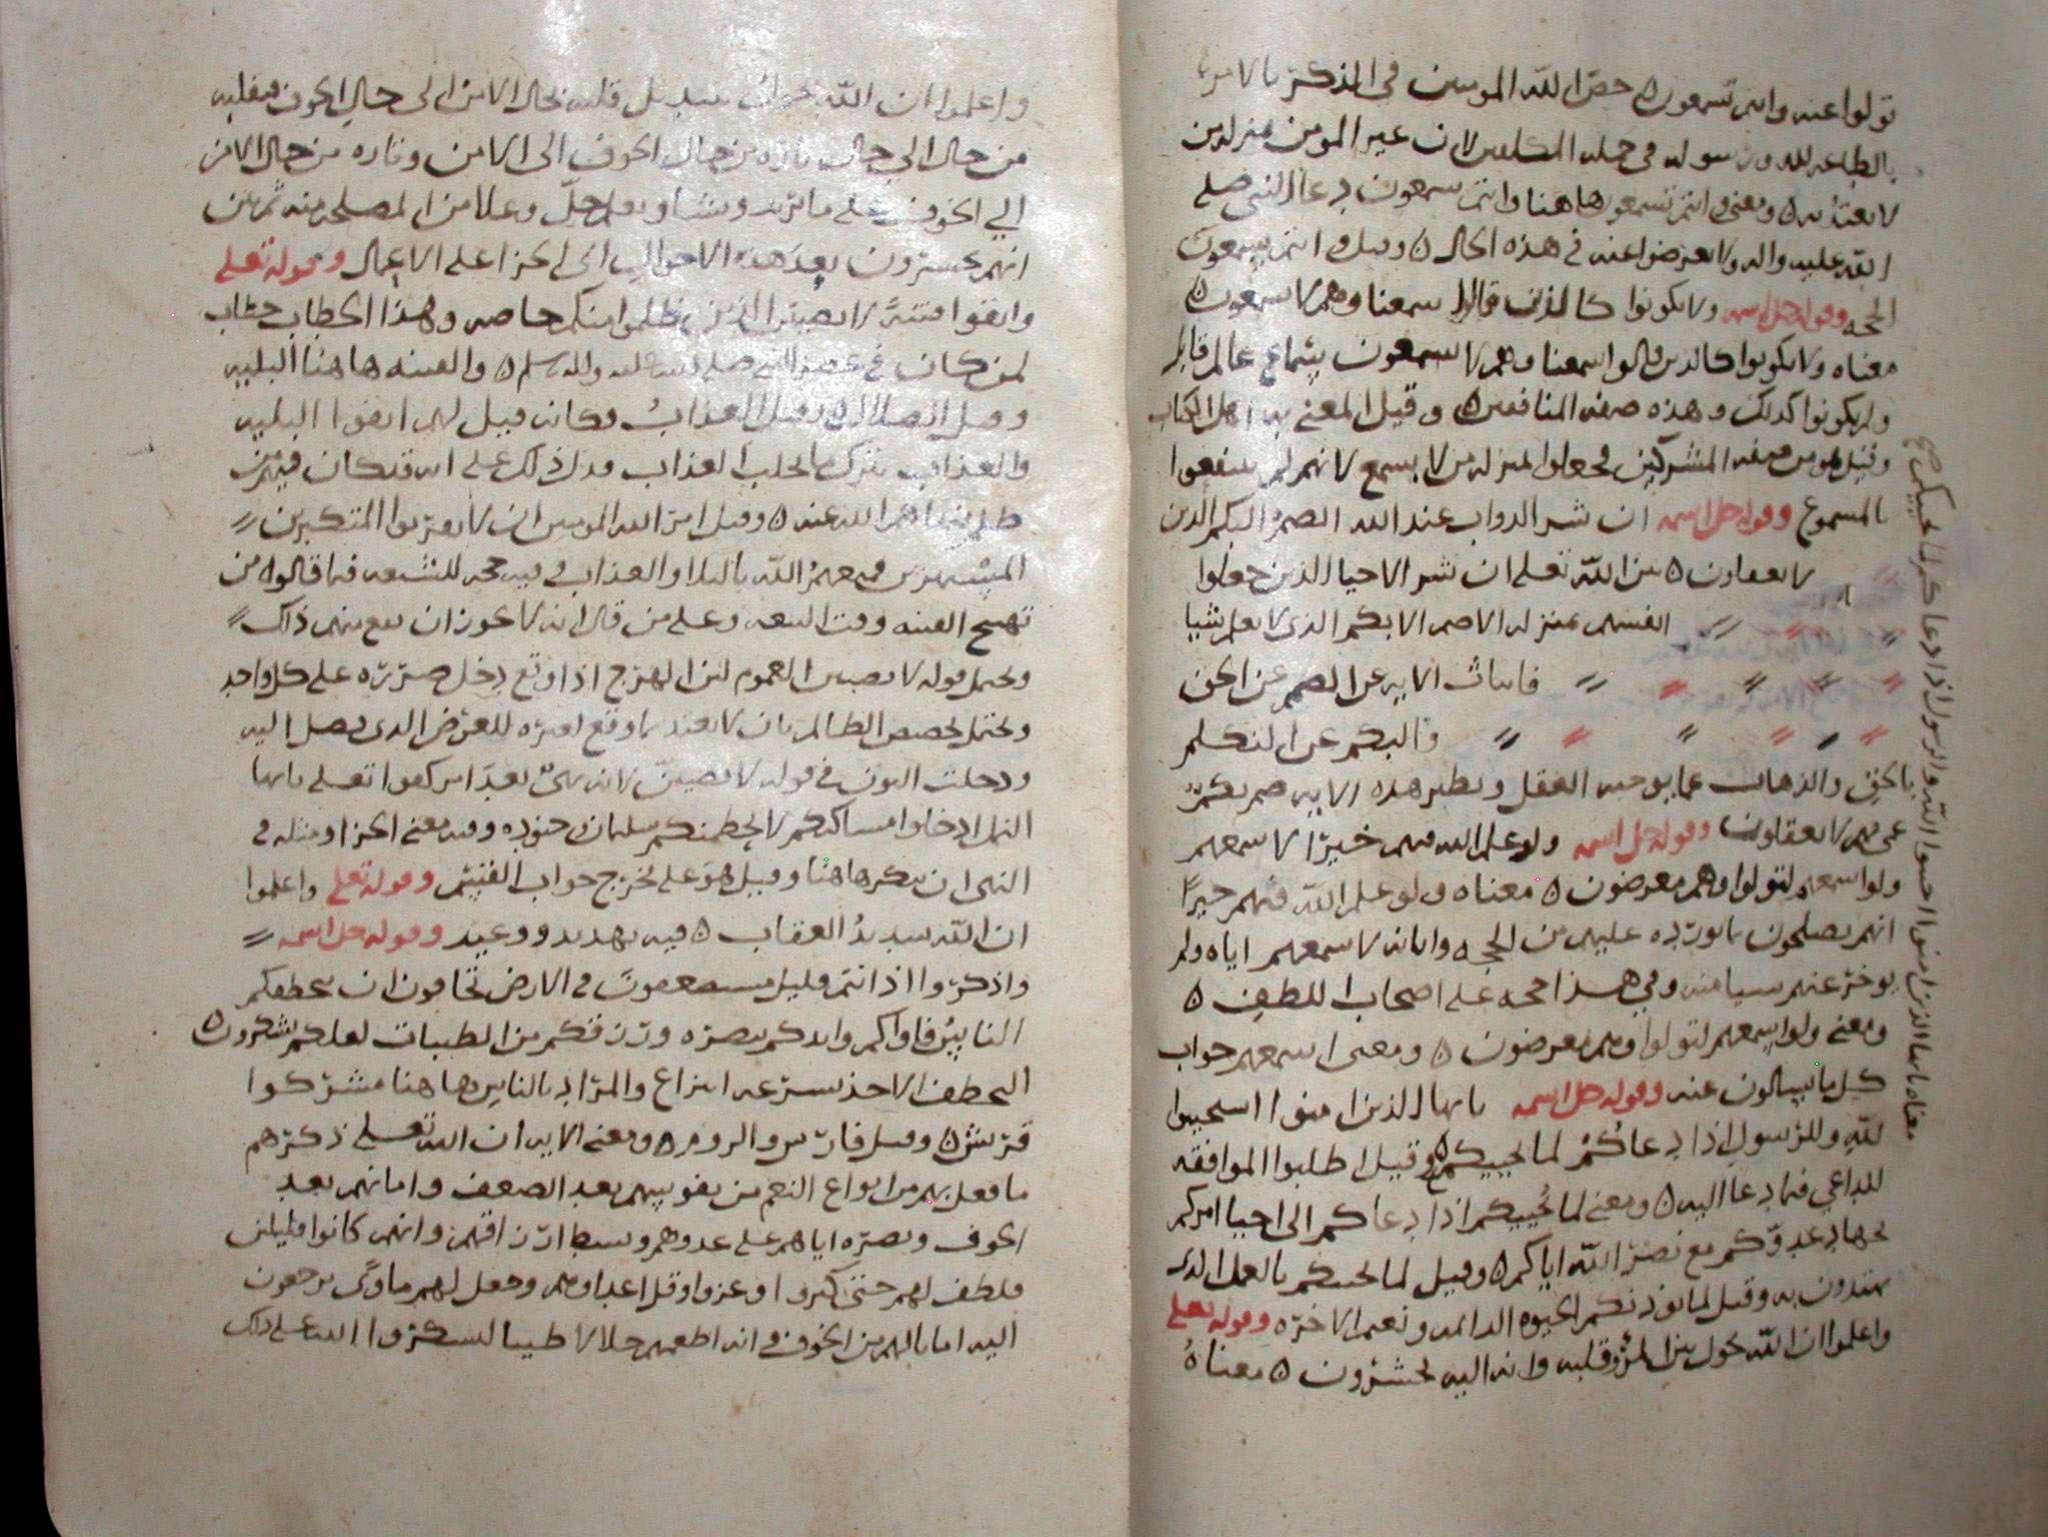 تولوا عنه وانتم تسمعون ه خص الله المومنين في الذكر بالامر
بالطاعه لله ورسوله في جمله المكلفين لان غير المومن منزله من
لا يعتد به ه ومعنى وانتم تسمعون هاهنا وانتم سمعون دعا النبي صلى
الله عليه واله ولا تعرضوا عنه في هذه الحال ه وقيل وانتم تسمعون
الحجه وقوله جل اسمه ولا تكونوا كالذين قالوا سمعنا وهم لا سمعون ه
معناه ولا تكونوا كالذين قالوا سمعنا وهم لا سمعون سماع عالم قابل
وليكونوا كذلك وهذه صفه المنافقين ه وقيل المعني به اهل الكتاب
وقيل هو من صفه المشركين فجعلوا بمنزله من لا يسمع لانهم لم ينتفعوا
بالمسموع وقوله جل اسمه ان شر الدواب عند الله الصم البكم الذين
لا يعقلون ه بين الله تعلى ان شر الاحيا الذين جعلوا
انفسهم بمنزله الاصم الابكم الذي لا يعلم شيا
الايه عن الصمم عن الحق
والبكم عن التكلم
بالحق والذهاب عما يوجبه العقل ونظير هذه الايه صم بكم
عمي فهم لا يعقلون وقوله جل اسمه ولو علم الله فيهم خيرا لاسمعهم
ولو اسمعهم لتولوا وهم معرضون ه معناه ولو علم الله فيهم خيرا
انهم يصلحون بما يورده عليهم من الحجه واياته لاسمعهم اياه ولم
يوخر عنهم شيا منه وفي هذا حجه على اصحاب اللطف ه
ومعنى ولو اسمعهم لتولوا وهم معرضون ه ومعنى اسمعهم جواب
كل ما يسالون عنه وقوله جل اسمه يايها الذين امنوا استجيبوا
لله وللرسول اذا دعاكم لما يحييكم ه وقيل اطلبوا الموافقه
للداعي فيما دعا اليه ه ومعنى لما يحييكم اذا دعاكم الى احيا امركم
بجهاد عدوكم مع نصر الله اياكم ه وقيل لما يحييكم بالعلم الذي
تهتدون به وقيل لما يورثكم الحيوه الدائمه ونعيم الاخره وقوله تعلى
واعلموا ان الله يحول بين المرء وقلبه وانه اليه تحشرون ه معناه
معناه يايها الذين امنوا اجيبوا الله والرسول اذا دعاكم لما يحييكم صح
واعلموا ان الله بتبديل قلبه بحال الامن الى حال الخوف فيقلبه
من حال الى حال تاره من حال الخوف الى الامن وتاره من حال الامن
الى الخوف على ما يريد ويشا جل وعلا من المصلحه ثم بين
انهم يحشرون بعد هذه الاحوال الى الجزا على الاعمال وقوله تعلى
واتقوا فتنه لا تصيبن الذين ظلموا منكم خاصه وهذا الخطاب خطاب
لمن كان في عصر النبي صلى الله عليه واله وسلم ه والفتنه هاهنا البليه
وقيل الضلال وقيل العذاب فكانه قيل لهم اتقوا البليه
والعذاب بترك ما يجلب العذاب فدل ذلك على انه قد كان فيهم من
الله عنه ه وقيل امر الله المومنين ان لا يقربوا المتكبرين
المستهزين فيعمهم الله بالبلا والعذاب وفيه حجه للشيعه فيما قالوه من
تهيج الفتنه وقت البيعه وعلى من قال انه لا يجوز ان يقع منهم ذلك
ويحتمل قوله لا تصيبن العموم لان الهرج اذا وقع دخل ضرره على كل واحد
ويحتمل تخصيص الظالم بان لا يعتد بما وقع لغيره للعوض الذي يصل اليه
ودخلت النون في قوله لا تصيبن لانه نهي بعد امر كقوله تعلى يايها
النمل ادخلوا مساكنكم لا يحطمنكم سليمان وجنوده وفيه معنى الجزا ومثله في
النهي ان ينكر هاهنا وقيل هو على مخرج جواب القسم وقوله تعلى واعلموا
ان الله شديد العقاب ه فيه تهديد ووعيد وقوله جل اسمه
واذكروا اذ انتم قليل مستضعفون في الارض تخافون ان يتخطفكم
الناس فاواكم وايدكم بنصره ورزقكم من الطيبات لعلكم تشكرون ه
التخطف الاخذ بسرعه انتزاع والمراد بالناس هاهنا مشركوا
قريش ه وقيل فارس والروم ه ومعنى الايه ان الله تعلى ذكرهم
ما فعل بهم من انواع النعم من تقويتهم بعد الضعف وامانهم بعد
الخوف ونصره اياهم على عدوهم وبسط ارزاقهم وانهم كانوا قليلين
فلطف لهم حتى كثروا وعزوا وقل اعداوهم وجعل لهم ماوى يرجعون
اليه امانا لهم من الخوف وانه اطعمهم حلالا طيبا ليشكروا الله على ذلك